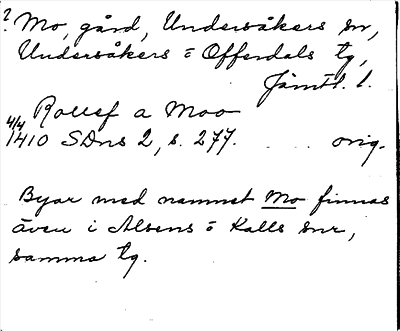 ? Mo, gård, Undersåkers sn,
Undersåkers o Offerdals tg,
Jämtl. l.
Rollef a Moo
4/4 1410 SDns 2, s. 277. . . . orig.
Byar med namnet Mo finnas
även i Alsens o Kalls snr,
samma tg.